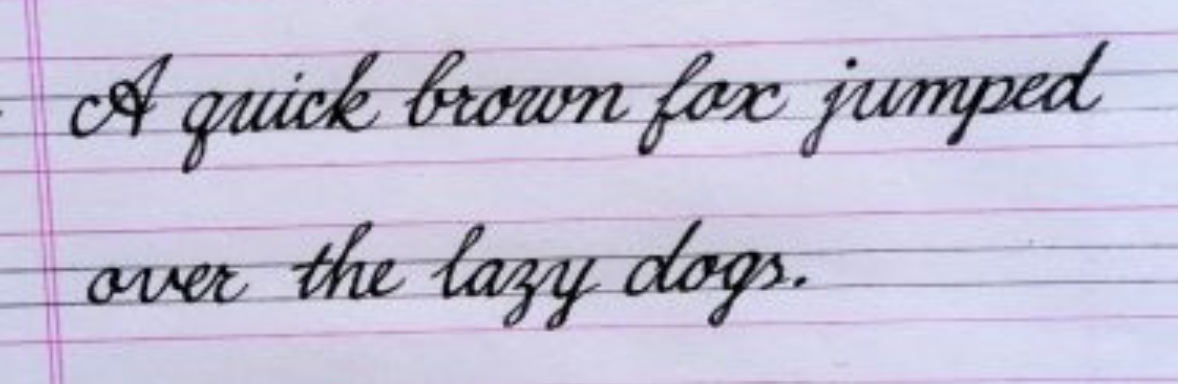 A quick brown fox jumped
over the lazy dogs.